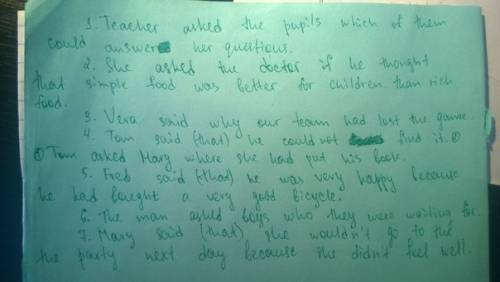 1. Teacher asked the pupils which of them
could answer her questions.
2. She asked the doctor if he thought
that simple food was better for children than rich
food.
3. Vera said why our team had lost the game.
4. Tom said (that) he could not find it.
Tom asked Mary where she had put his book.
5. Fred said (that) he was very happy because
he had bought a very good bicycle.
6. The man asked boys who they were waiting for.
7. Mary said (that) she wouldn't go to the
the party next day because she didn't feel well.